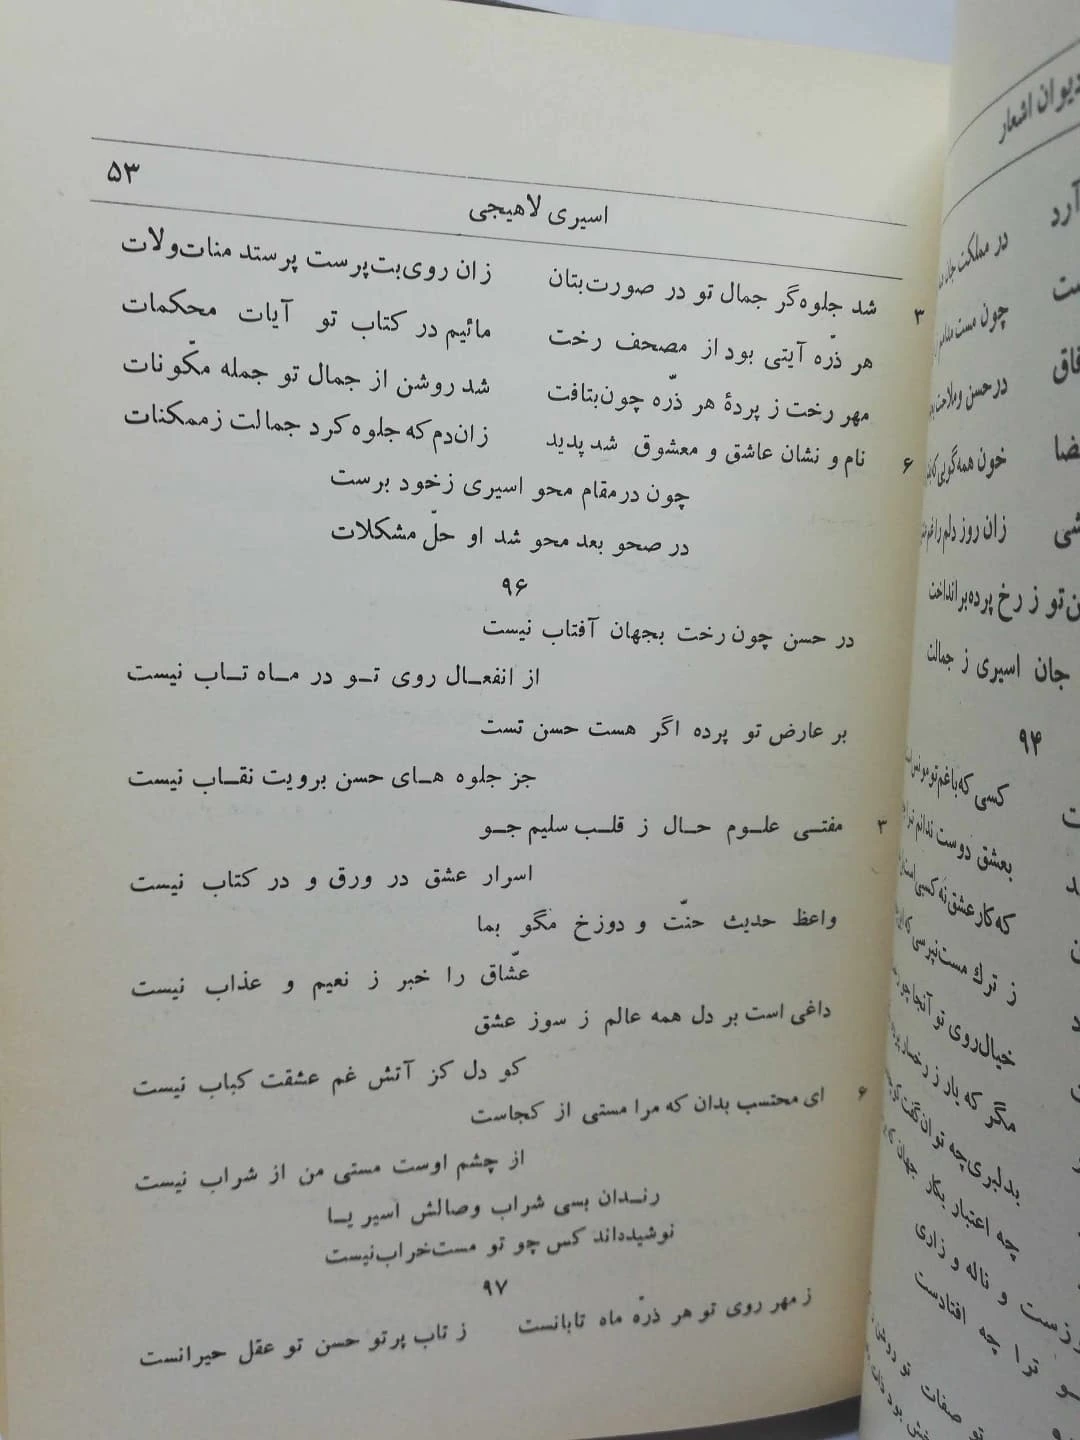 ۵۳
اسیری لاهیجی
۳ شد جلوه‌گر جمال تو در صورت‌بتان زان روی‌بت‌پرست پرستد منات‌ولات
هر ذرّه آیتی بود از مصحف رخت مائیم در کتاب تو آیات محکمات
مهر رخت ز پردۀ هر ذرّه چون‌بتافت شد روشن از جمال تو جمله مکوّنات
۶ نام و نشان عاشق و معشوق شد پدید زان‌دم که جلوه کرد جمالت ز ممکنات
چون در مقام محو اسیری ز خود برست
در صحو بعد محو شد او حلّ مشکلات
۹۶
در حسن چون رخت بجهان آفتاب نیست
از انفعـال روی تـو در مـاه تـاب نیست
بر عارض تو پرده اگر هست حسن تست
جز جلوه هـای حسن برویت نقـاب نیست
۳ مفتـی علـوم حـال ز قلـب سلیم جـو
اسرار عشق در ورق و در کتاب نیست
واعظ حدیث حنّت و دوزخ مگو بما
عشّاق را خبر ز نعیم و عذاب نیست
داغی است بر دل همه عالم ز سوز عشق
کو دل کز آتش غم عشقت کباب نیست
۶ ای محتسب بدان که مرا مستی از کجاست
از چشم اوست مستی من از شراب نیست
رنـدان بسی شراب وصالش اسیر یـا
نوشیده‌اند کس چو تو مست‌خراب‌نیست
۹۷
ز مهر روی تو هر ذرّه ماه تابانست ز تاب پرتو حسن تو عقل حیرانست
دیوان اشعار
آرد
در مملکت جان
چون مست مدام
در حسن و ملاحت
خون همه‌گویی که
زان روز دلم را غم
تو ز رخ پرده‌بر انداخت
جان اسیری ز جمالت
۹۴
کسی که باغم‌تو مونس
بعشق دوست ندانم
که کار عشق نه کسبی است
ز ترك مست نپرسی که
خیال‌روی تو آنجا چو
مگر که یار ز رخسار
بدلبری‌چه توان گفت
چه اعتبار بکار جهان که
و ناله و زاری
ترا چه افتادست
تو صفات تو